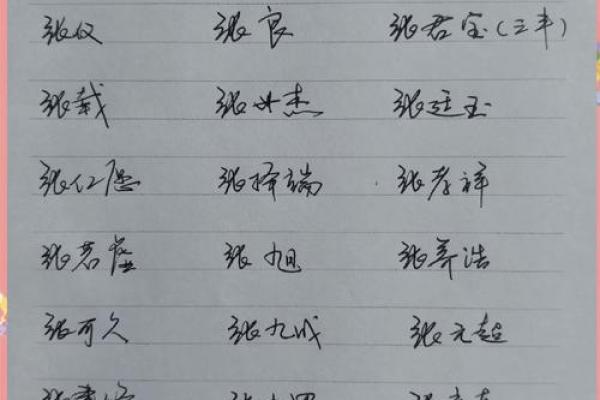 张仪 张良 张君宝(三丰)
张载 张世杰 张廷玉
张仁愿 张择端 张孝祥
张若虚 张旭 张养浩
张可久 张九成 张元超